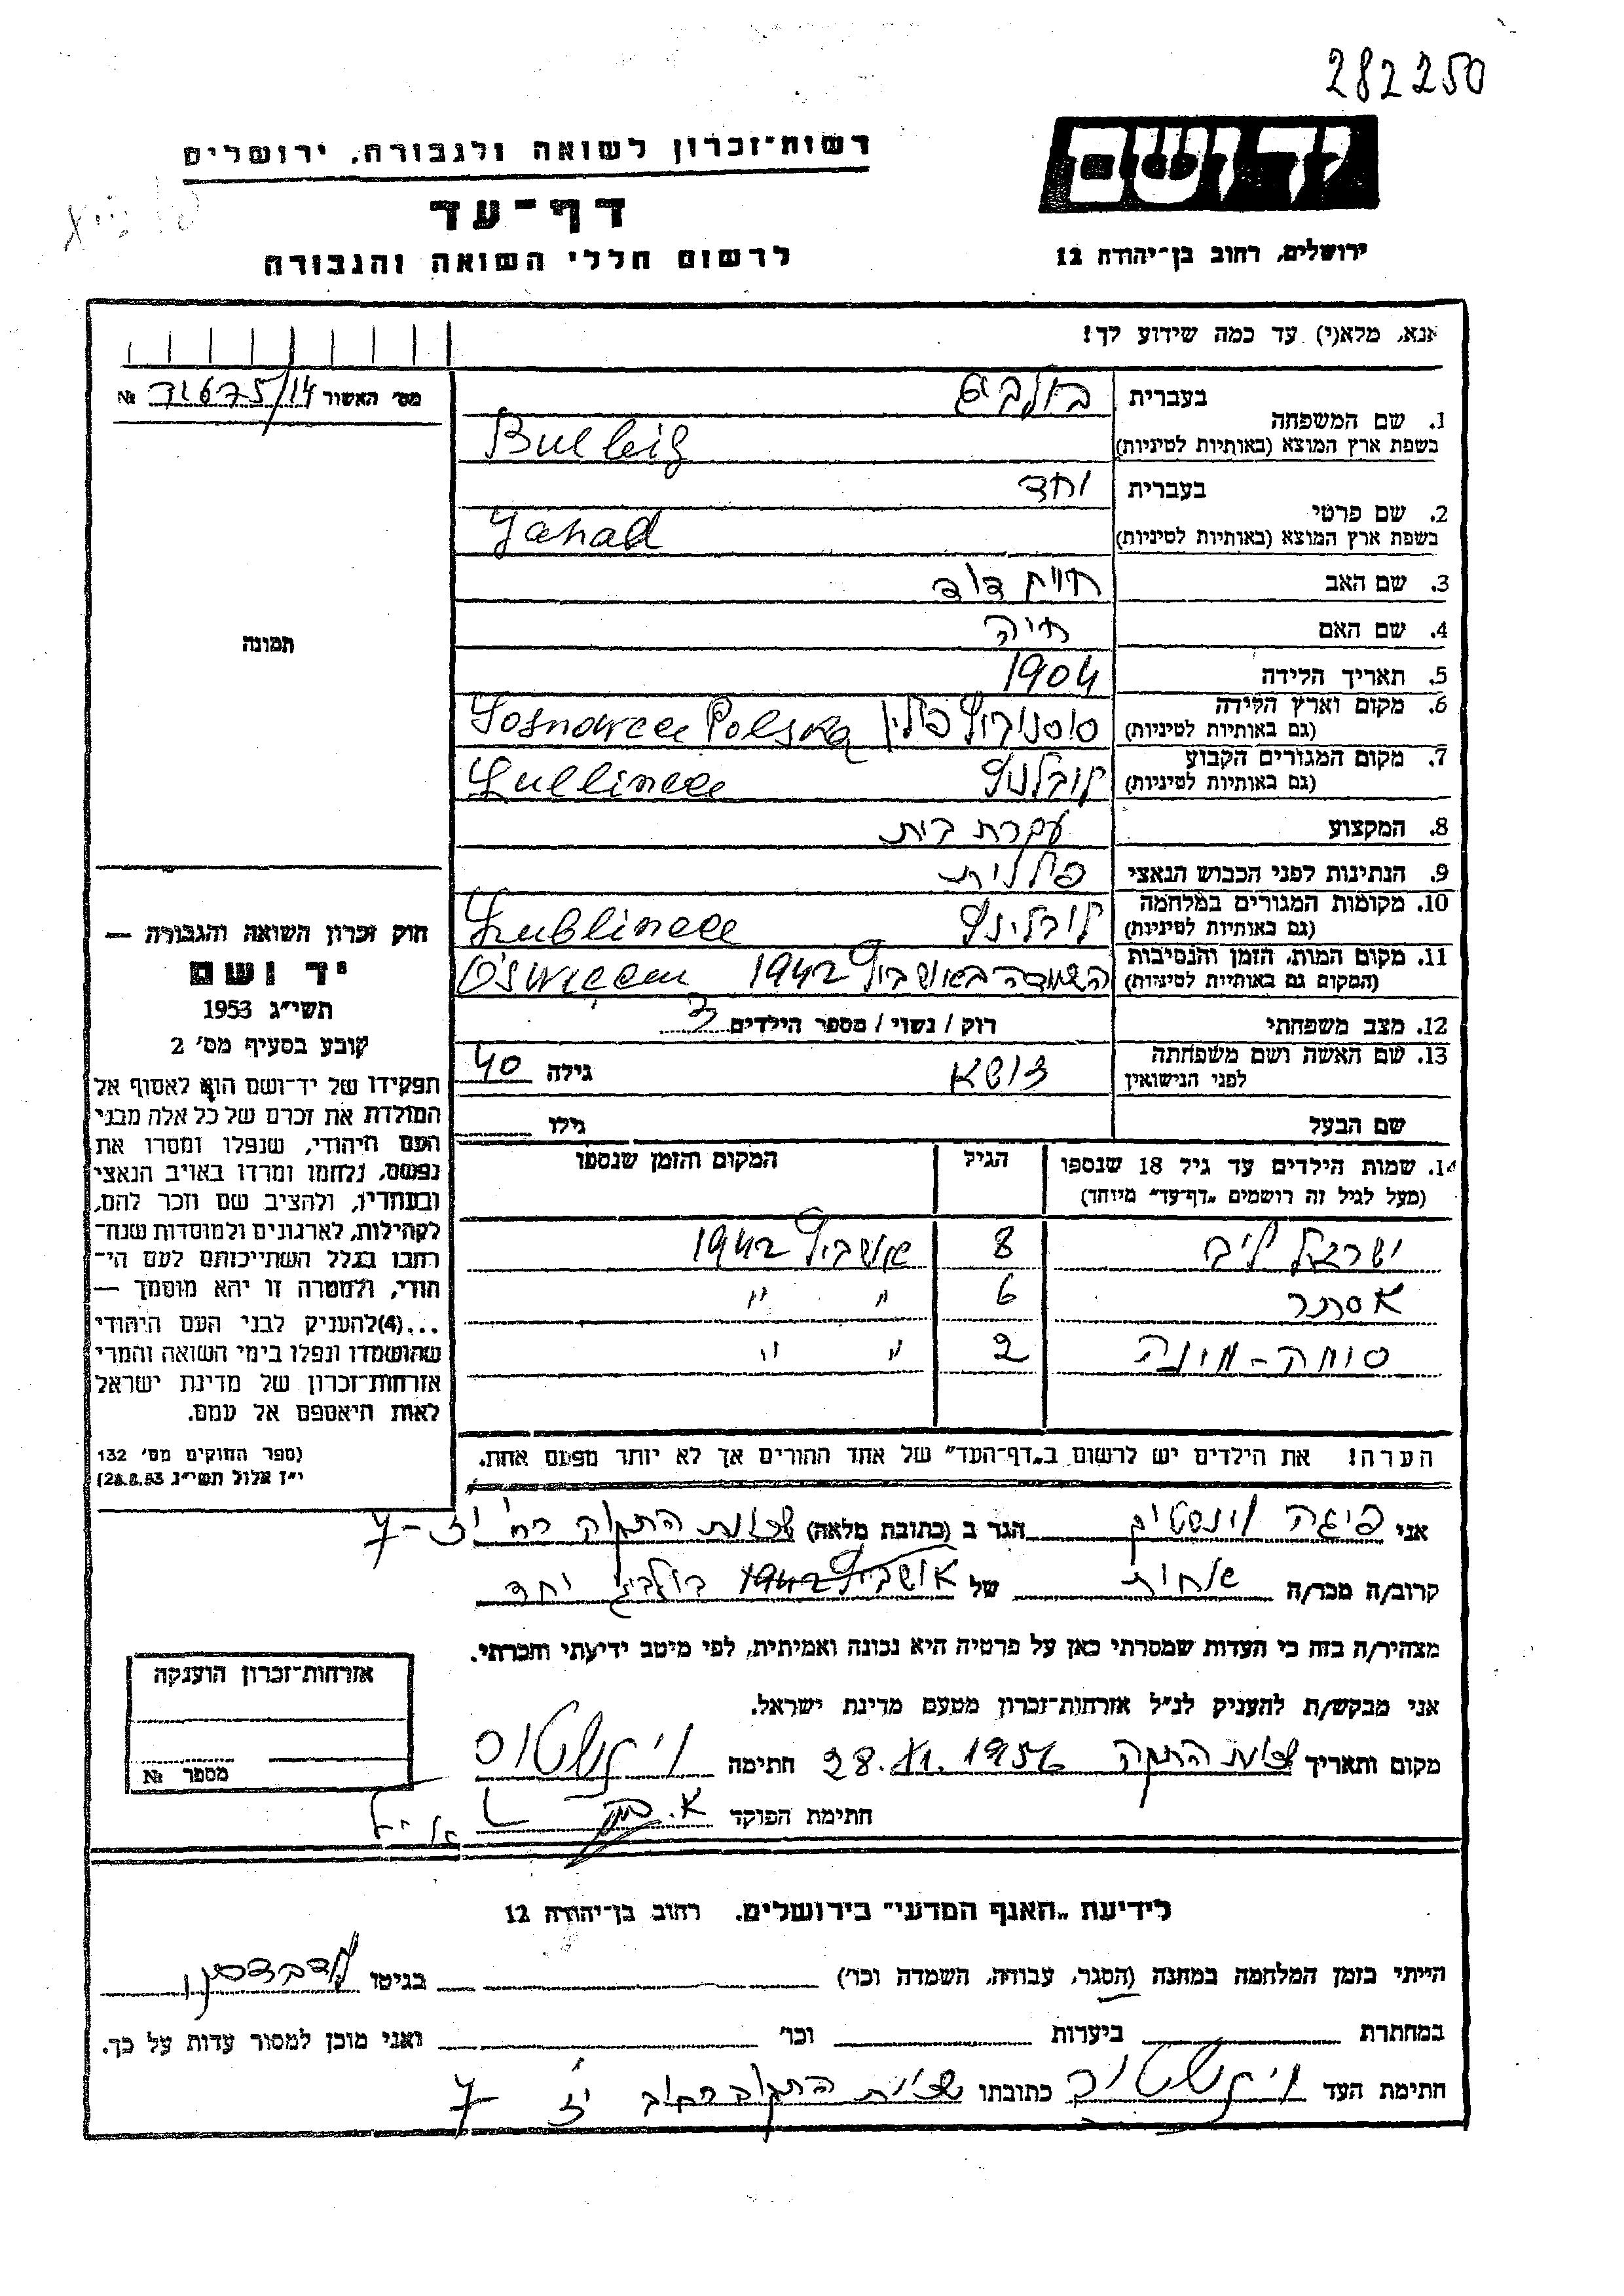 282250
רשות־זכרון לשואה ולגבורה, ירושלים
יד ושם
דף־עד
לרשום חללי השואה והגבורה
ירושלים, רחוב בן־יהודה 12
אנא, מלא(י) עד כמה שידוע לך!
מס׳ האשור 71675/14 №
1. שם המשפחה
בעברית
בשפת ארץ המוצא (באותיות לטיניות) Bulleig
2. שם פרטי
בעברית יחד
בשפת ארץ המוצא (באותיות לטיניות) Jahad
3. שם האב דוד
4. שם האם חיה
5. תאריך הלידה 1904
6. מקום וארץ הלידה
(גם באותיות לטיניות) פולין Polska
7. מקום המגורים הקבוע
(גם באותיות לטיניות)
8. המקצוע עקרת בית
9. הנתינות לפני הכבוש הנאצי פולנית
10. מקומות המגורים במלחמה
(גם באותיות לטיניות) Lublinec
11. מקום המות, הזמן והנסיבות
(המקום גם באותיות לטיניות) 1942
12. מצב משפחתי רוק / נשוי / מספר הילדים 3
13. שם האשה ושם משפחתה
לפני הנישואין גילה 40
שם הבעל גילו
14. שמות הילדים עד גיל 18 שנספו
(מעל לגיל זה רושמים „דף־עד״ מיוחד)
הגיל
המקום והזמן שנספו
ישראל ליב 8 אושביץ 1942
אסתר 6 ״ ״
2 ״ ״
הערה! את הילדים יש לרשום ב„דף־העד״ של אחד ההורים אך לא יותר מפעם אחת.
תמונה
חוק זכרון השואה והגבורה —
יד ושם
תשי״ג 1953
קובע בסעיף מס׳ 2
תפקידו של יד־ושם הוא לאסוף אל
המולדת את זכרם של כל אלה מבני
העם היהודי, שנפלו ומסרו את
נפשם, נלחמו ומרדו באויב הנאצי
ובעוזריו, ולהציב שם וזכר להם,
לקהילות, לארגונים ולמוסדות שנח־
רבו בגלל השתייכותם לעם הי־
הודי, ולמטרה זו יהא מוסמך —
...(4)להעניק לבני העם היהודי
שהושמדו ונפלו בימי השואה והמרי
אזרחות־זכרון של מדינת ישראל
לאות היאספם אל עמם.
(ספר החוקים מס׳ 132
י״ז אלול תשי״ג 28.8.53)
אני פיגה וינשטין הגר ב (כתובת מלאה)
קרוב/ה מכר/ה אחות של אושביץ 1942 יחד
מצהיר/ה בזה כי העדות שמסרתי כאן על פרטיה היא נכונה ואמיתית, לפי מיטב ידיעתי והכרתי.
אני מבקש/ת להעניק לנ״ל אזרחות־זכרון מטעם מדינת ישראל.
מקום ותאריך 28.XI.1956 חתימה
חתימת הפוקד
אזרחות־זכרון הוענקה
מספר №
לידיעת „האגף המדעי״ בירושלים, רחוב בן־יהודה 12
הייתי בזמן המלחמה במחנה (הסגר, עבודה, השמדה וכו׳) בגיטו
במחתרת ביערות וכו׳ ואני מוכן למסור עדות על כך.
חתימת העד כתובתו